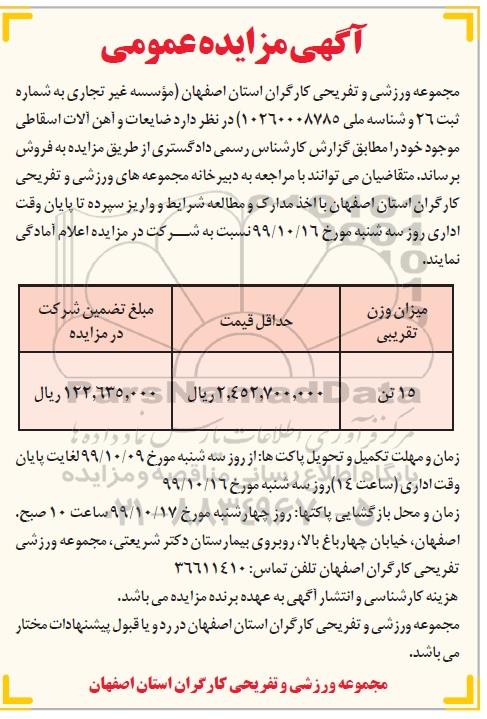 آگهی مزایده عمومی
مجموعه ورزشی و تفریحی کارگران استان اصفهان (مؤسسه غیر تجاری به شماره
ثبت ۲۶ و شناسه ملی ۱۰۲۶۰۰۰۸۷۸۵) در نظر دارد ضایعات و آهن آلات اسقاطی
موجود خود را مطابق گزارش کارشناس رسمی دادگستری از طریق مزایده به فروش
برساند. متقاضیان می توانند با مراجعه به دبیرخانه مجموعه های ورزشی و تفریحی
کارگران استان اصفهان با اخذ مدارک و مطالعه شرایط و واریز سپرده تا پایان وقت
اداری روز سه شنبه مورخ ۹۹/۱۰/۱۶ نسبت به شــرکت در مزایده اعلام آمادگی
نمایند.
میزان وزن تقریبی حداقل قیمت مبلغ تضمین شرکت در مزایده
۱۵ تن ۲,۴۵۲,۷۰۰,۰۰۰ ریال ۱۲۲,۶۳۵,۰۰۰ ریال
ParsNamadData
مرکز فرآوری اطلاعات پارس نماد داده ها
زمان و مهلت تکمیل و تحویل پاکت ها: از روز سه شنبه مورخ ۹۹/۱۰/۰۹ لغایت پایان
پایگاه اطلاع رسانی مناقصه و مزایده
وقت اداری (ساعت ۱۴) روز سه شنبه مورخ ۹۹/۱۰/۱۶
۰۲۱-۸۸۳۴۹۶۷۰-۵
زمان و محل بازگشایی پاکتها: روز چهارشنبه مورخ ۹۹/۱۰/۱۷ ساعت ۱۰ صبح.
اصفهان، خیابان چهارباغ بالا، روبروی بیمارستان دکتر شریعتی، مجموعه ورزشی
تفریحی کارگران اصفهان تلفن تماس: ۳۶۶۱۱۴۱۰
هزینه کارشناسی و انتشار آگهی به عهده برنده مزایده می باشد.
مجموعه ورزشی و تفریحی کارگران استان اصفهان در رد و یا قبول پیشنهادات مختار
می باشد.
مجموعه ورزشی و تفریحی کارگران استان اصفهان